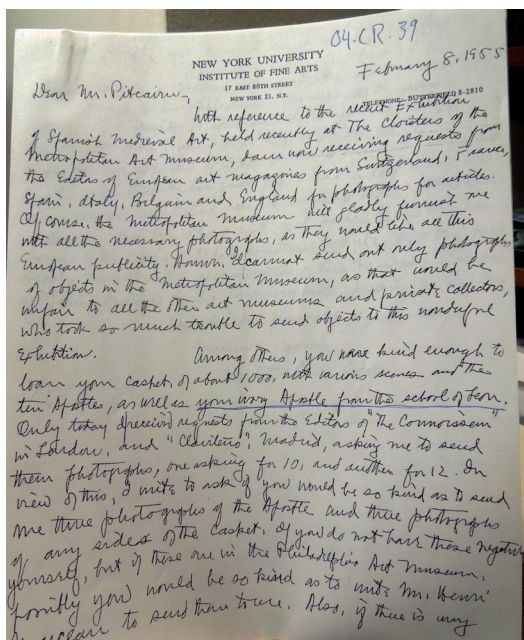 04.CR.39
NEW YORK UNIVERSITY
INSTITUTE OF FINE ARTS
17 EAST 80TH STREET
NEW YORK 21, N.Y.
February 8, 1955
TELEPHONE: BUTTERFIELD 8-2810
Dear Mr. Pitcairn,
With reference to the recent Exhibition
of Spanish Medieval Art, held recently at The Cloisters of the
Metropolitan Art Museum, I am now receiving requests from
the Editors of European art magazines from Switzerland, France,
Spain, Italy, Belgium and England for photographs for articles.
Of course, the Metropolitan Museum will gladly furnish me
with all the necessary photographs, as they would like all this
European publicity. However, I cannot send out only photographs
of objects in the Metropolitan Museum, as that would be
unfair to all the other art museums and private collectors,
who took so much trouble to send objects to this
Exhibition. Among others, you were kind enough to
loan your casket, of about 1000, with various scenes and the
Apostles, as well as your ivory Apostle from the school of Leon.
Only today I received requests from the Editors of "The Connoisseur"
in London, and Madrid, asking me to send
them photographs, one asking for 10, and another for 12. In
view of this, I write to ask if you would be so kind as to send
me three photographs of the Apostle and three photographs
of any sides of the Casket. If you do not have these negatives
yourself, but if these are in the Philadelphia Art Museum,
possibly you would be so kind as to write Mr. Henri
to send them to me. Also, if there is any